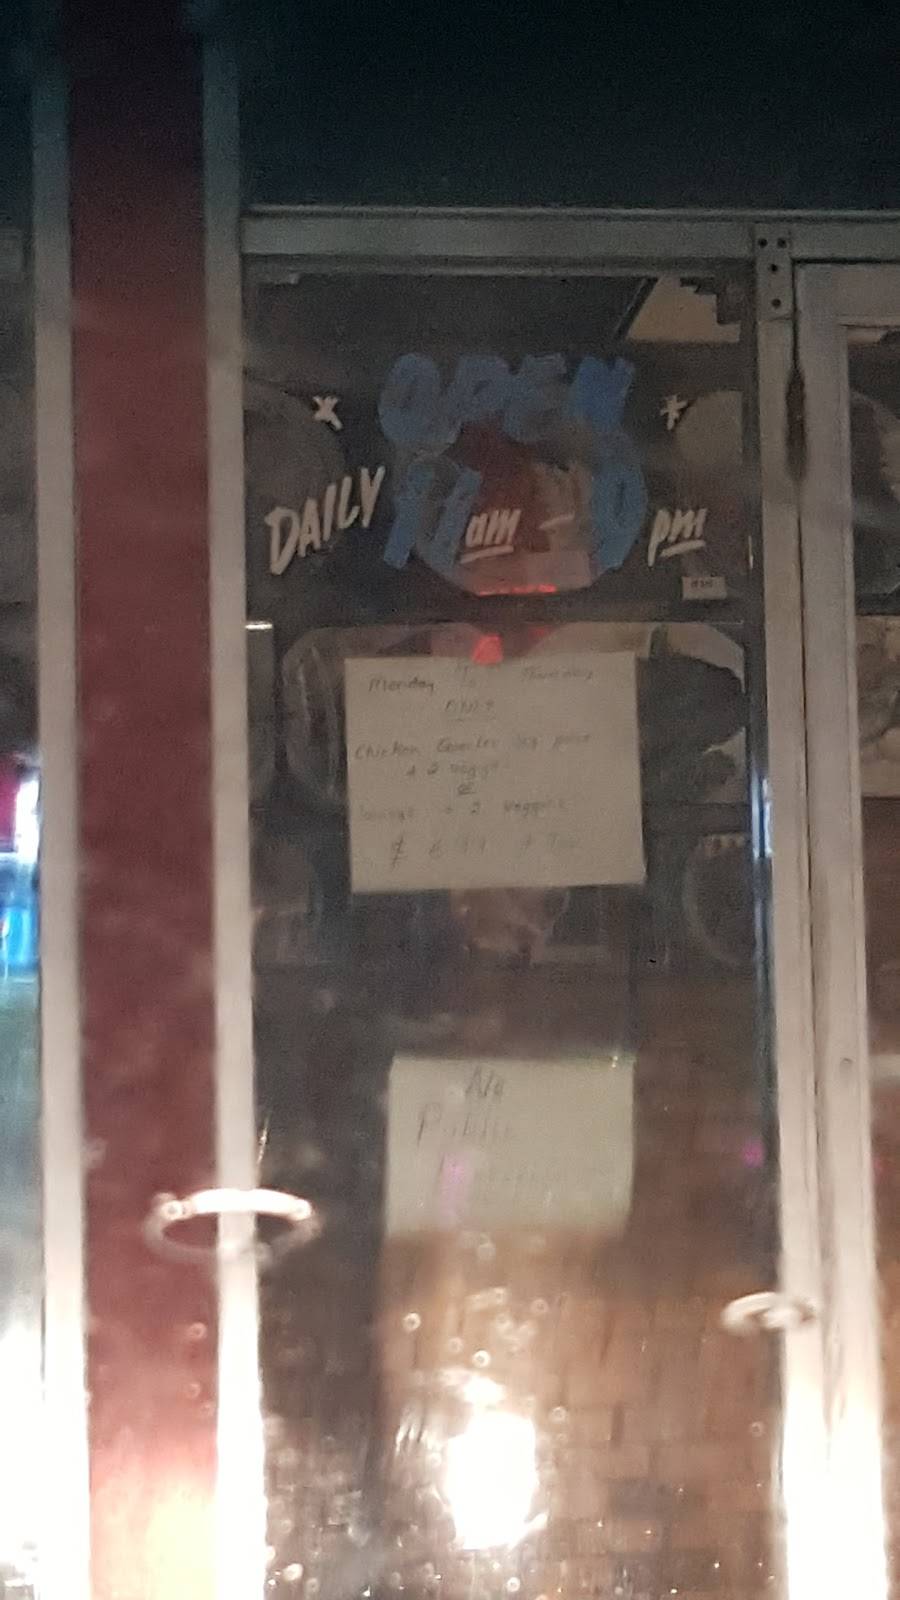 OPEN
DAILY 11 am - pm
Monday To Thursday
ONLY
Chicken Quarter leg
+ 2 veggie
OR
+ 2 veggies
$ 6.99 + Tax
No
Public